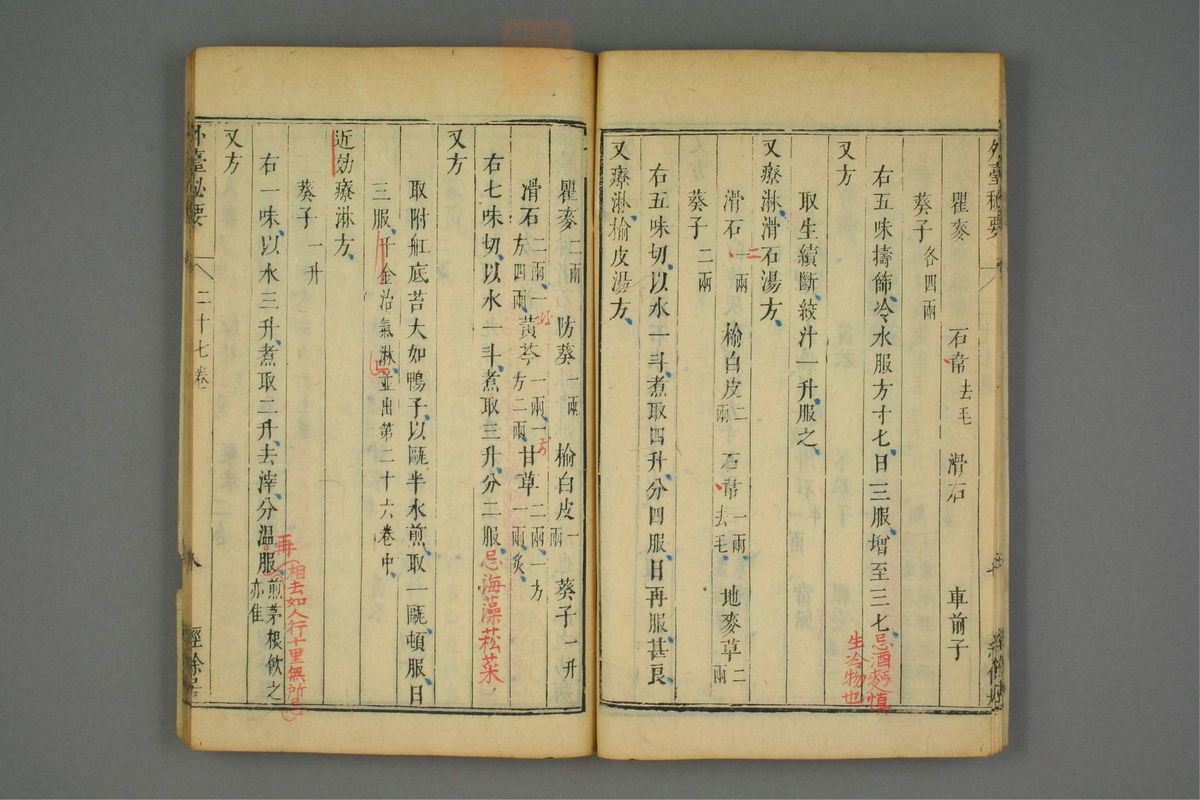 瞿麥 石韋去毛 滑石 車前子
葵子各四兩
右五味擣篩冷水服方寸七日三服增至三七忌酒麫慎生冷物也
又方
取生續斷絞汁一升服之
又療淋滑石湯方
滑石二兩 榆白皮二兩 石韋一兩去毛 地麥草二兩
葵子二兩
右五味切以水一斗煮取四升分四服日再服甚良
又療淋榆皮湯方
瞿麥二兩 防葵一兩 榆白皮一兩 葵子一升
滑石二兩一方四兩 黃芩一兩一方二兩 甘草二兩一方一兩炙
右七味切以水一斗煮取三升分二服忌海藻菘菜
又方
取附舡底苔大如鴨子以甌半水煎取一甌頓服日
三服千金治氣淋並出第二十六卷中
近効療淋方
葵子一升
右一味以水三升煮取二升去滓分溫再服相去如人行十里無所忌煎茅根飲之亦佳
又方
外臺秘要 二十七卷 八 經餘居